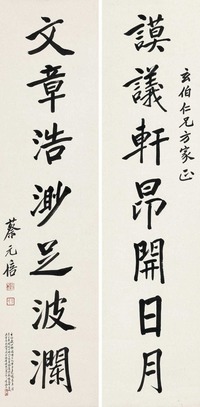 玄伯仁兄方家正
謨議軒昂開日月
文章浩渺足波瀾
蔡元培